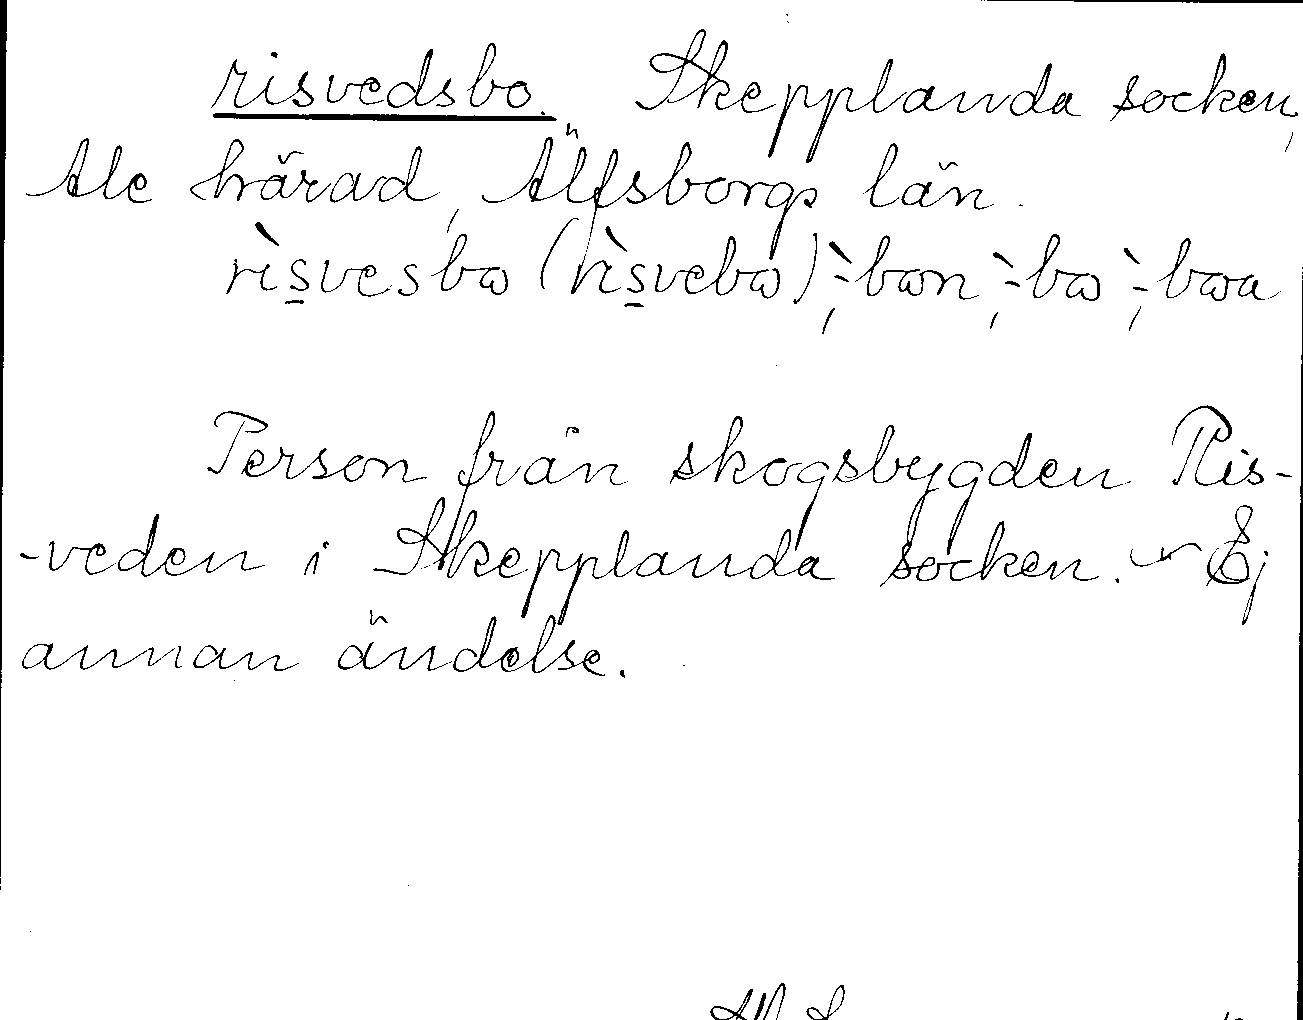 risvedsbo. Skepplanda socken,
Ale härad, Älfsborgs län.
rìsvesbω (rìsvebω), `-bωn, `-bω, `-bωa
Person från skogsbygden Ris-
-veden i Skepplanda socken. - Ej
annan ändelse.